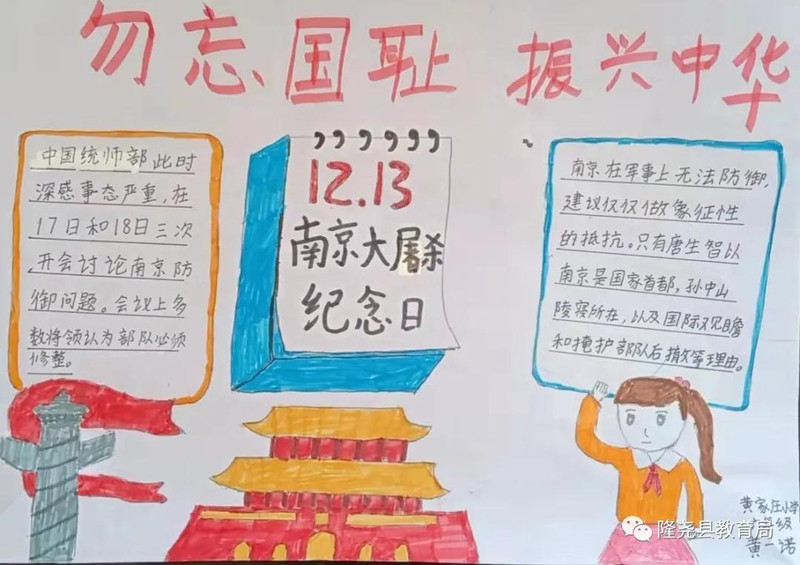 勿忘国耻 振兴中华
中国统师部此时
深感事态严重,在
17日和18日三次
开会讨论南京防
御问题。会议上多
数将领认为部队必须
修整。
12.13
南京大屠杀
纪念日
南京在军事上无法防御,
建议仅仅做象征性
的抵抗。只有唐生智以
南京是国家首都,孙中山
陵寝所在,以及国际观瞻
和掩护部队后撤等理由。
黄家庄小学
级
黄一诺
隆尧县教育局